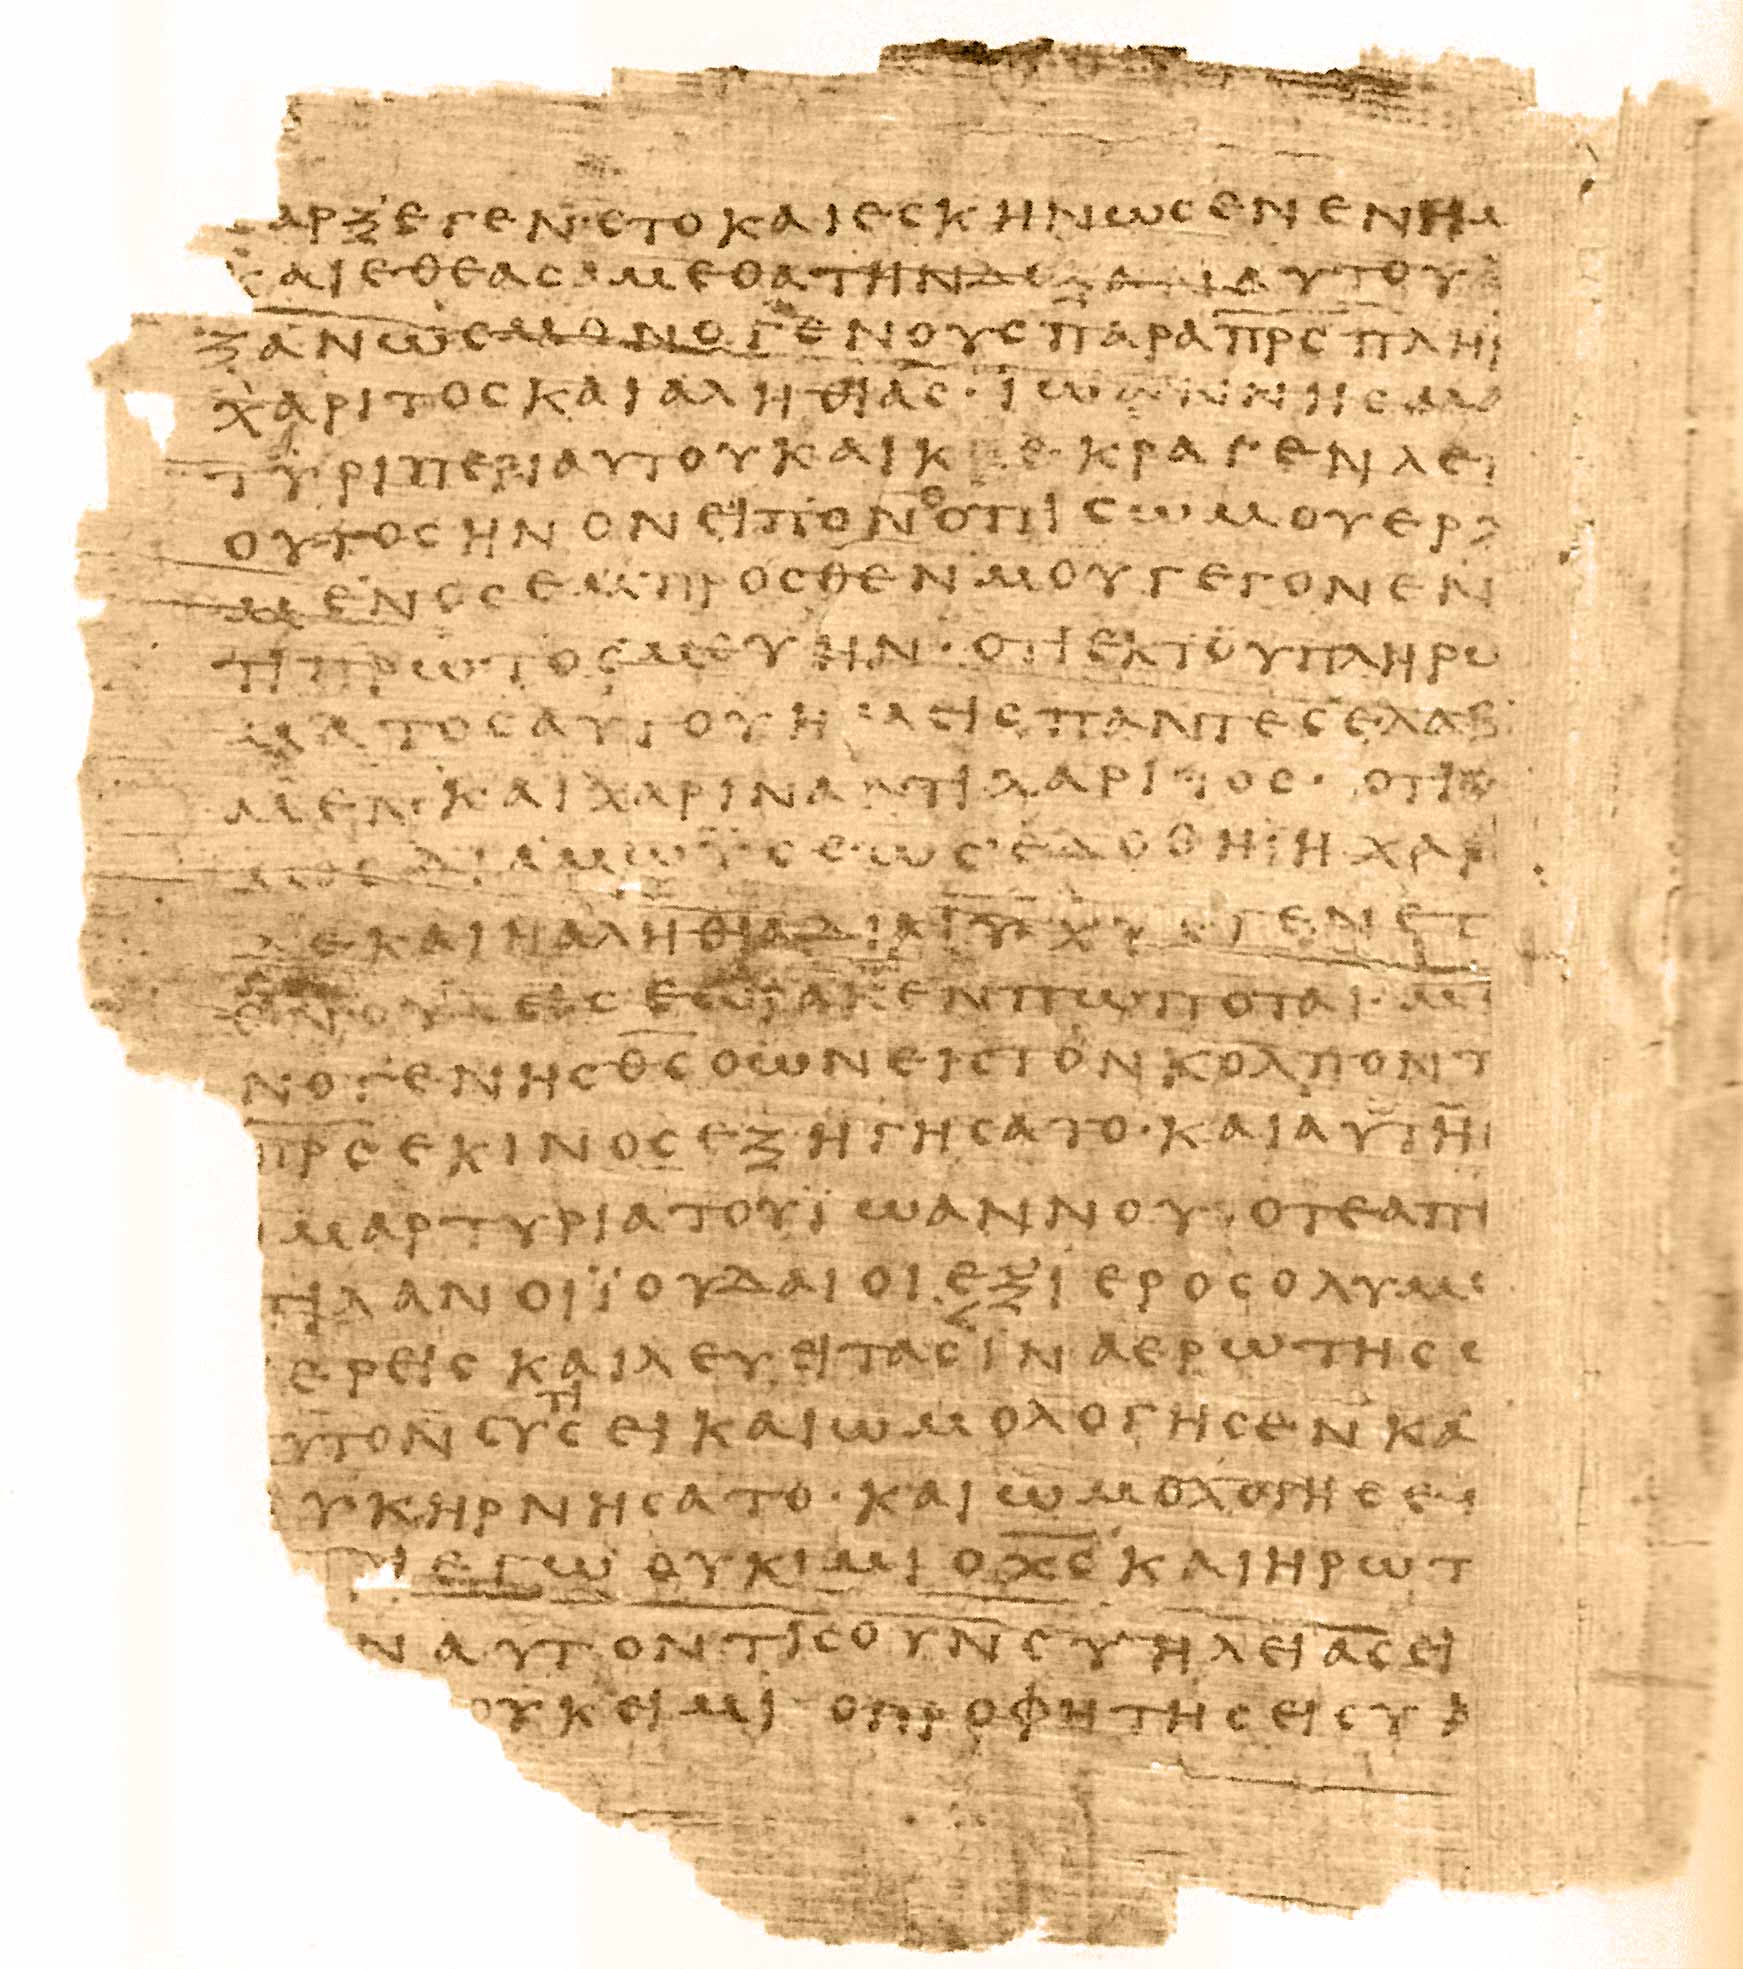 ΑΡΞ ΕΓΕΝΕΤΟ ΚΑΙ ΕϹΚΗΝΩϹΕΝ ΕΝ ΗΜ
ΚΑΙ ΕΘΕΑϹΑΜΕΘΑ ΤΗΝ ΔΟΞΑΝ ΑΥΤΟΥ
ΞΑΝ ΩϹ ΜΟΝΟΓΕΝΟΥϹ ΠΑΡΑ Π̅Ρ̅Ϲ̅ ΠΛΗΡ
ΧΑΡΙΤΟϹ ΚΑΙ ΑΛΗΘΙΑϹ · ΙΩΑΝΝΗϹ ΜΑ
ΤΥΡΙ ΠΕΡΙ ΑΥΤΟΥ ΚΑΙ ΚΕΚΡΑΓΕΝ ΛΕΓ
ΟΥΤΟϹ ΗΝ ΟΝ ΕΙΠΟΝ Ο ΟΠΙϹΩ ΜΟΥ ΕΡΧ
ΜΕΝΟϹ ΕΜΠΡΟϹΘΕΝ ΜΟΥ ΓΕΓΟΝΕΝ
ΤΙ ΠΡΩΤΟϹ ΜΟΥ ΗΝ · ΟΤΙ ΕΚ ΤΟΥ ΠΛΗΡΩ
ΜΑΤΟϹ ΑΥΤΟΥ ΗΜΕΙϹ ΠΑΝΤΕϹ ΕΛΑΒ
ΜΕΝ ΚΑΙ ΧΑΡΙΝ ΑΝΤΙ ΧΑΡΙΤΟϹ · ΟΤΙ Ο
ΜΟϹ ΔΙΑ ΜΩΫϹΕΩϹ ΕΔΟΘΗ · Η ΧΑΡΙ
ΔΕ ΚΑΙ Η ΑΛΗΘΙΑ ΔΙΑ Ι̅Υ̅ Χ̅Υ̅ ΕΓΕΝΕΤ
Θ̅Ν̅ ΟΥΔΕΙϹ ΕΩΡΑΚΕΝ ΠΩΠΟΤΑΙ · Μ
ΝΟΓΕΝΗϹ Θ̅Ϲ̅ Ο ΩΝ ΕΙϹ ΤΟΝ ΚΟΛΠΟΝ Τ
Π̅Ρ̅Ϲ̅ ΕΚΙΝΟϹ ΕΞΗΓΗϹΑΤΟ · ΚΑΙ ΑΥΤΗ
ΜΑΡΤΥΡΙΑ ΤΟΥ ΪΩΑΝΝΟΥ · ΟΤΕ ΑΠΕ
ΤΙΛΑΝ ΟΙ ΪΟΥΔΑΙΟΙ ΕΞ ΙΕΡΟϹΟΛΥΜΩ
ΕΡΕΙϹ ΚΑΙ ΛΕΥΕΙΤΑϹ ΙΝΑ ΕΡΩΤΗϹΩ
ΥΤΟΝ ϹΥ ΤΙϹ ΕΙ ΚΑΙ ΩΜΟΛΟΓΗϹΕΝ ΚΑ
ΥΚ ΗΡΝΗϹΑΤΟ · ΚΑΙ ΩΜΟΛΟΓΗϹΕΝ
ΤΙ ΕΓΩ ΟΥΚ ΙΜΙ Ο Χ̅Ϲ̅ ΚΑΙ ΗΡΩΤ
Ν ΑΥΤΟΝ ΤΙϹ ΟΥΝ ϹΥ ΗΛΕΙΑϹ ΕΙ
ΟΥΚ ΕΙΜΙ Ο ΠΡΟΦΗΤΗϹ ΕΙ ϹΥ Κ